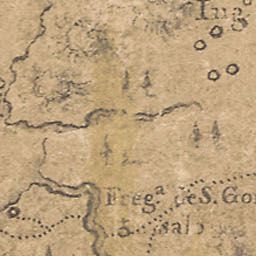 Ing
Freg.ª de S. Gon
salo